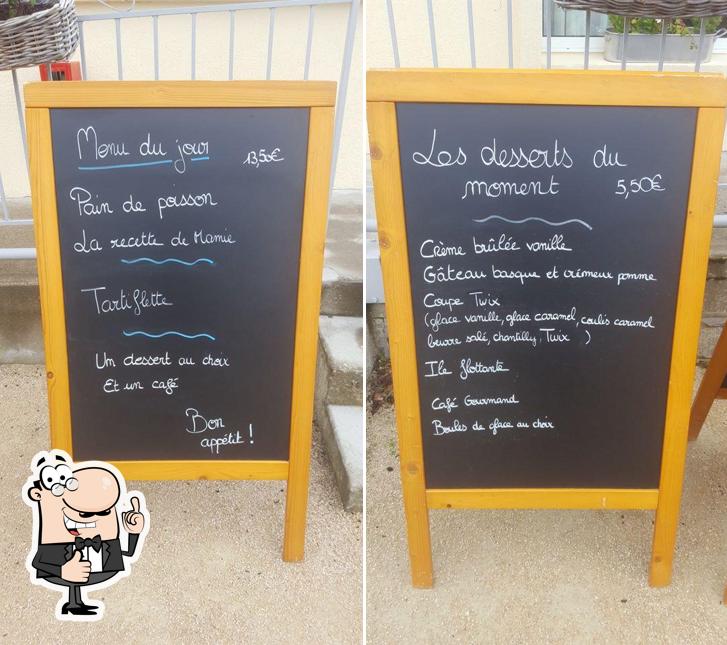 Menu du jour 13,50€
Pain de poisson
La recette de Mamie
Tartiflette
Un dessert au choix
Et un café
Bon
appétit !
Les desserts du
moment 5,50€
Crème brûlée vanille
Gâteau basque et crémeux pomme
Coupe Twix
(glace vanille, glace caramel, coulis caramel
beurre salé, chantilly, Twix )
Ile flottante
Café Gourmand
Boules de glace au choix